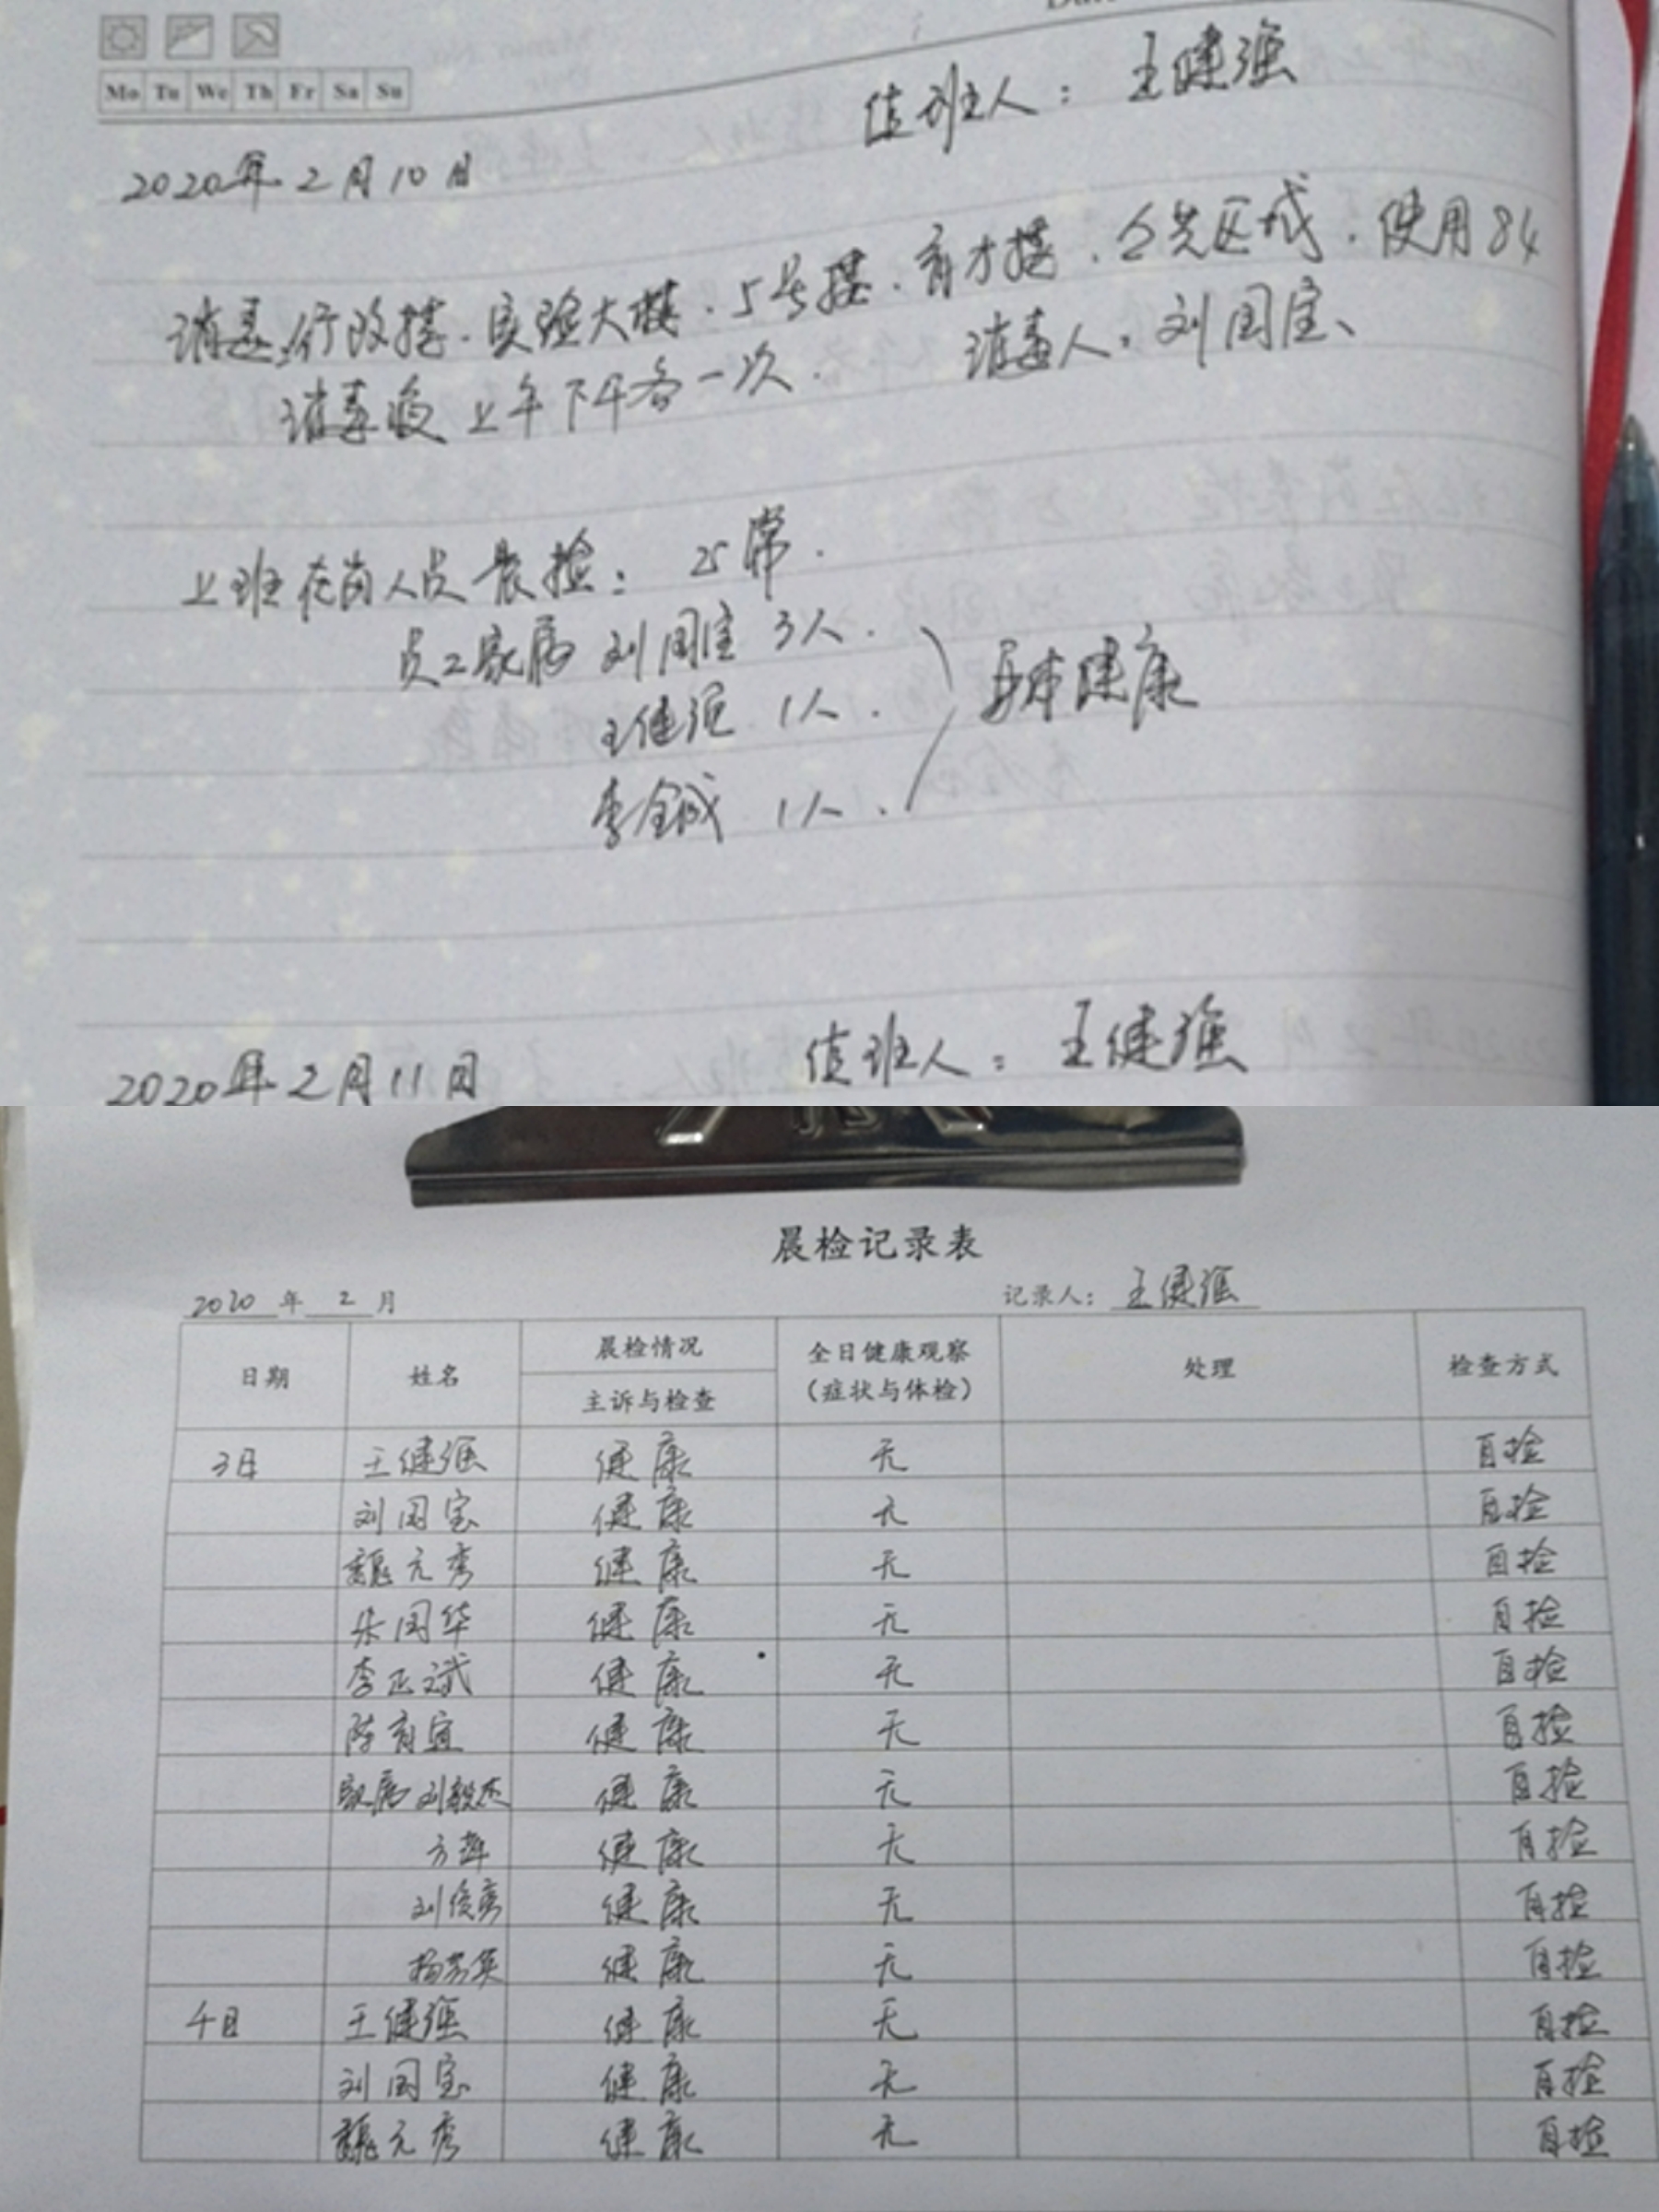 Mo Tu We Th Fr Sa Su
值班人：王健强
2020年2月10日
消毒：行政楼、实验大楼、5号楼、育才楼、公共区域，使用84
消毒液 上午下午各一次． 消毒人：刘国宝、
上班在岗人员晨检：正常．
员工家属 刘国宝 3人．
王健强 1人．
身体健康
李金诚 1人．
2020年2月11日 值班人：王健强
晨检记录表
2020 年 2 月 记录人：王健强
日期 姓名 晨检情况 全日健康观察 处理 检查方式
主诉与检查 （症状与体检）
3日 王健强 健康 无 自检
刘国宝 健康 无 自检
魏元秀 健康 无 自检
朱国华 健康 无 自检
李正斌 健康 无 自检
陈育宜 健康 无 自检
家属 刘毅杰 健康 无 自检
方 健康 无 自检
刘俊彦 健康 无 自检
杨芳英 健康 无 自检
4日 王健强 健康 无 自检
刘国宝 健康 无 自检
魏元秀 健康 无 自检